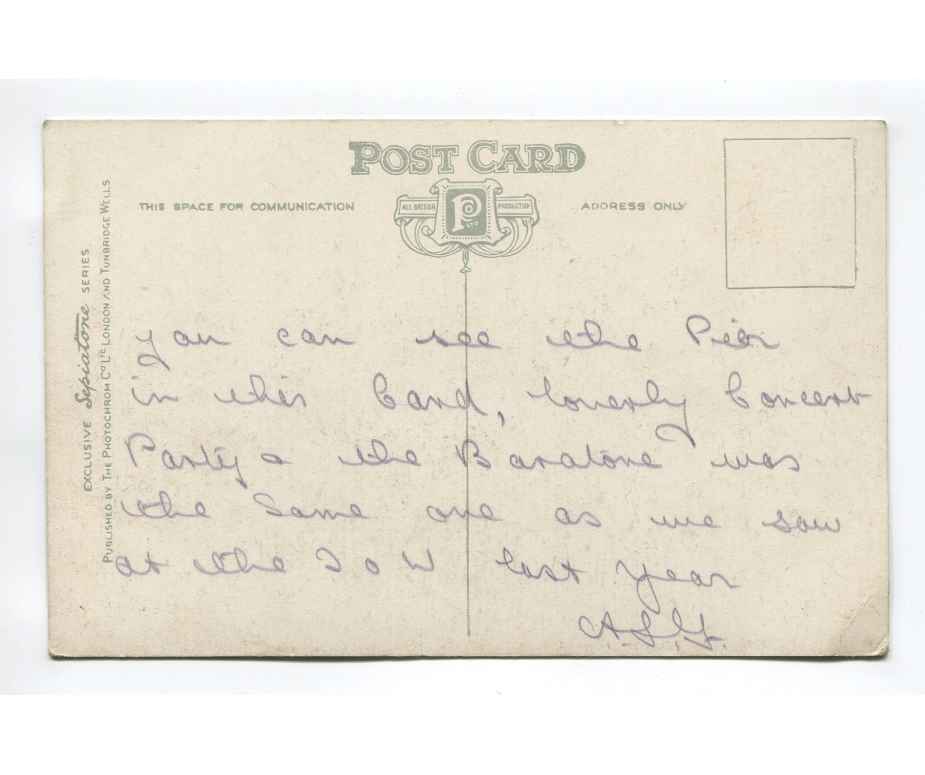 POST CARD
THIS SPACE FOR COMMUNICATION
ALL BRITISH PRODUCTION
P Co LTD
ADDRESS ONLY
EXCLUSIVE Sepiatone SERIES
PUBLISHED BY THE PHOTOCHROM CO LTD LONDON AND TUNBRIDGE WELLS
you can see the Pier
in this Card, loverly Concert
Party & the Baratone was
the Same one as we saw
at the I o W last year